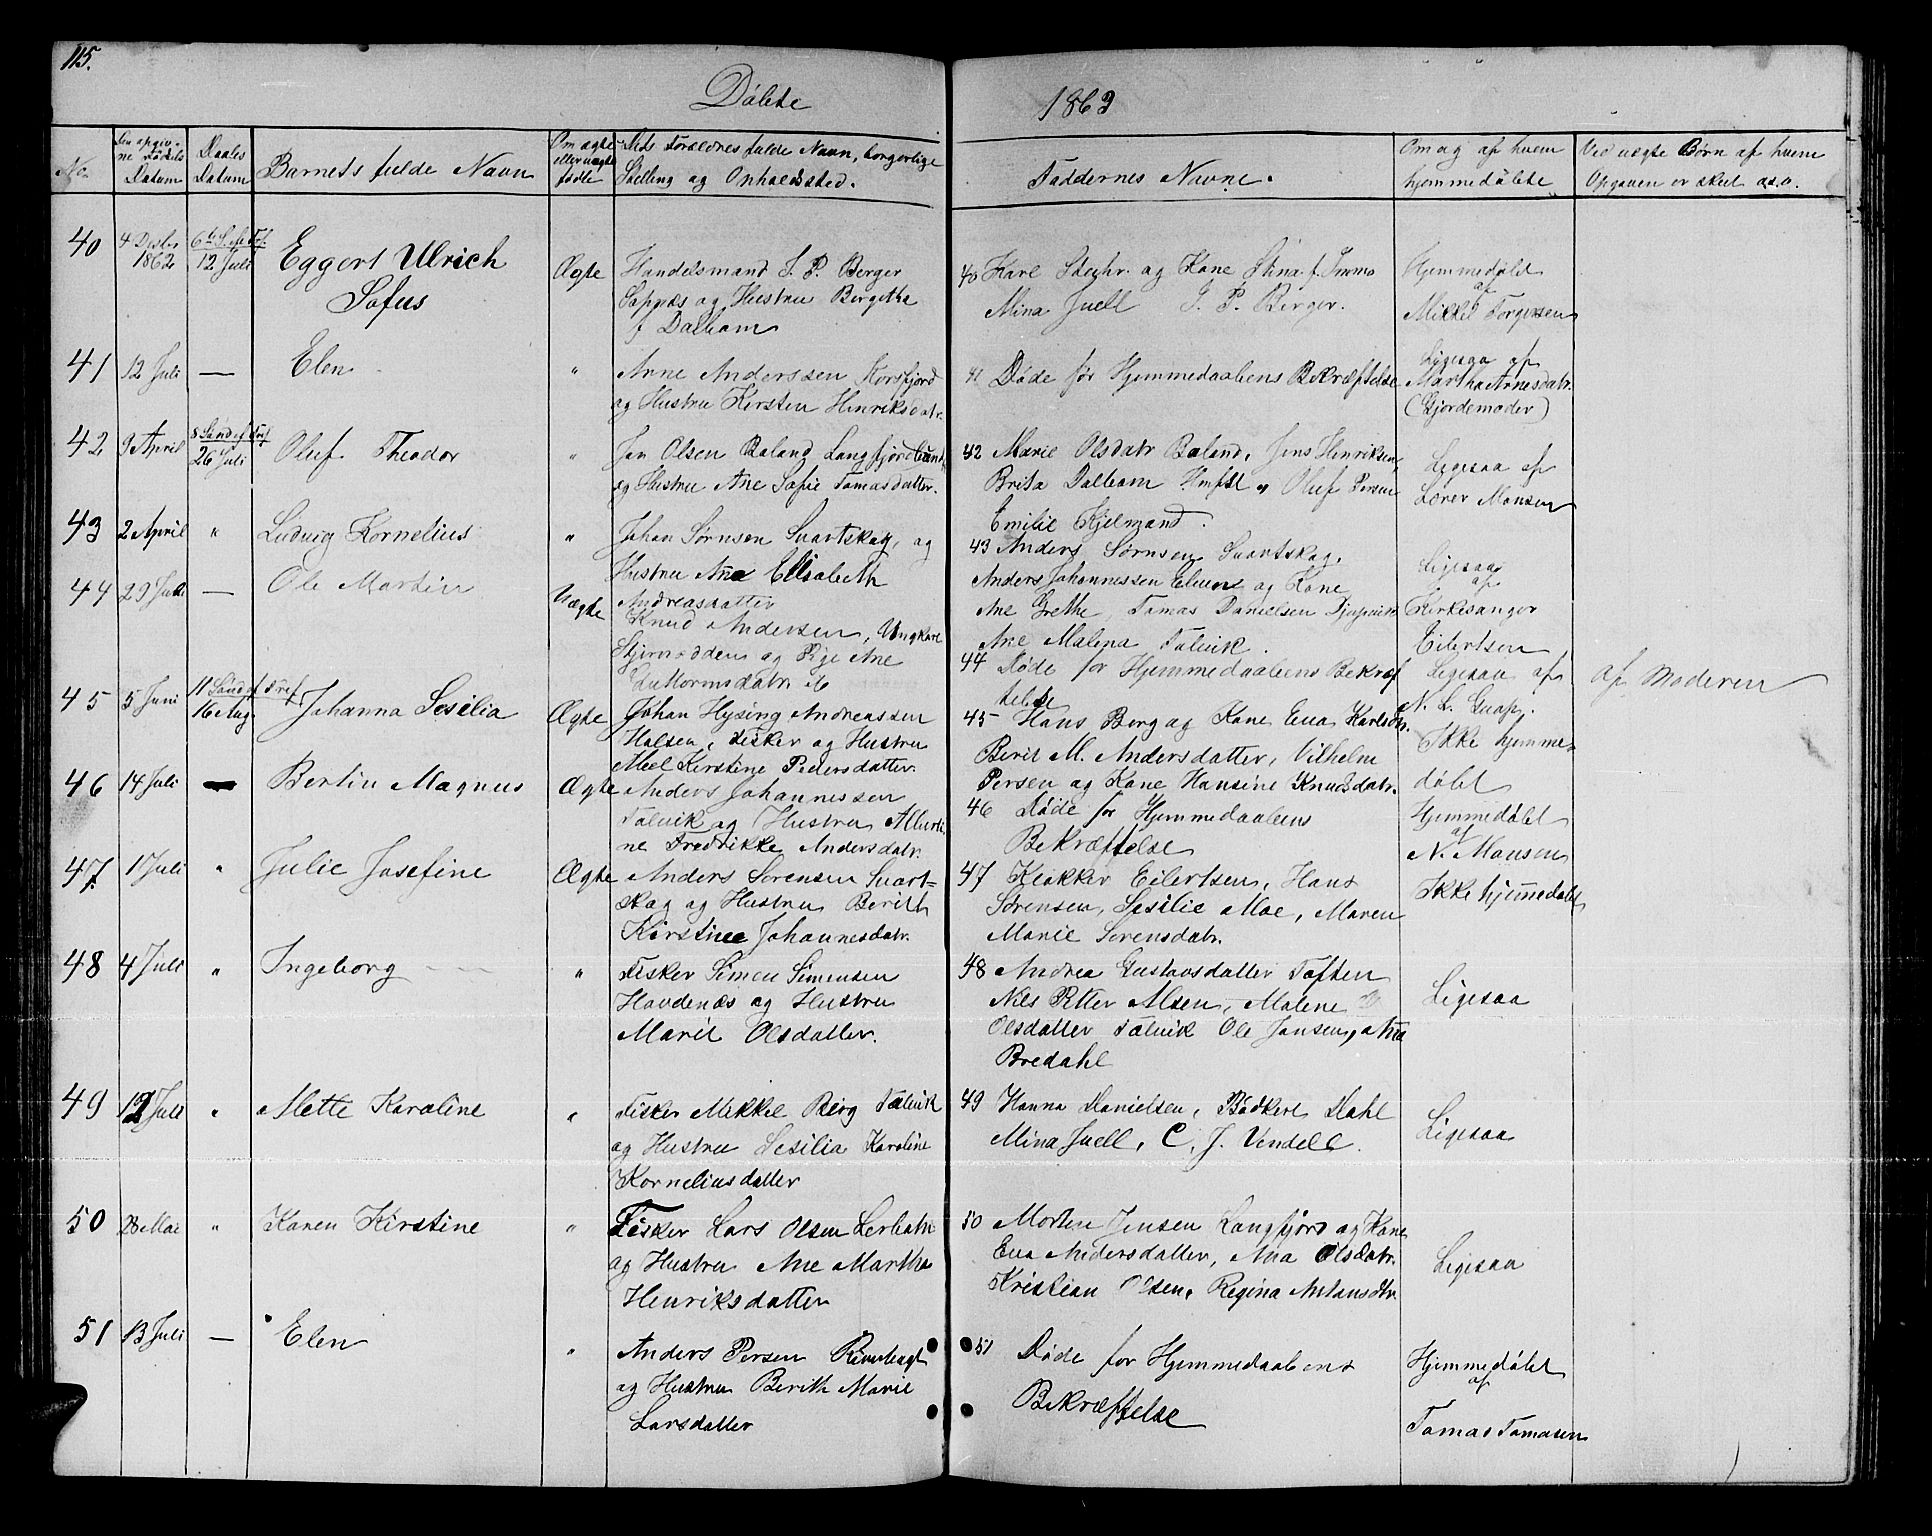 115.
Döbte
1863
No.
Den opgiv-
ne Födsels
Datum
Daabs
Datum
Barnets fulde Navn
Om ægte
eller uægte
födte
Dets Foraldres fulde Navn, borgerlige
Stilling og Opholdssted.
Faddernes Navne.
Om og af hvem
hjemmedöbte
Ved uægte Börn af hvem
Opgaven er skeet o.s.v.
40
4 Decbr
1862
6te S. ef. Tref.
12 Juli
Eggert Ulrich
Sofus
Ægte
Handelsmand J. P. Berger
og Hustru Bergitha
f Dalheim
40 Karl og Kone Stina f.
Mina Juell J. P. Berger.
Hjemmedöbt
af
Mikkel Torgersen
41
12 Juli
—
Elen
"
Arne Anderssen Korsfjord
og Hustru Kirsten Henriksdatr.
41 Döde för Hjemmedaabens Bekræftelse
Ligesaa af
Martha Arnesdatr.
(Gjordemoder)
42
9 April
8 Sönd ef Tref
26 Juli
Oluf Theodor
"
Jen Olsen Baland Langfjordbund
og Hustru Ane Sofie Tomasdatter.
42 Marie Olsdatr Baland, Jens Henriksen,
Brita Dalheim Oluf Persen
Emilie Kjelmand.
Ligesaa af
Lærer Monsen
43
2 April
"
Ludvig Kornelius
"
Johan Sörnsen Svartskog, og
Hustru Ane Elisabeth
Andreasdatter
43 Anders Sörnsen Svartskog,
Anders Johannessen og Kone
Ane Grethe, Tomas Danielsen
Ane Malena Talvik.
Ligesaa
af
Kirkesanger
Eilertsen
44
29 Juli
—
Ole Martin
Uægte
Knud Andersen, Ungkarl
og Pige Ane
44 Döde for Hjemmedaabens Bekræf
telse
Ligesaa af
N. L.
af Moderen
45
5 Juni
11 Sönd ef Tref.
16 Aug.
Johanna Sesilia
Ægte
Johan Hysing Andreassen
Halsen, Fisker og Hustru
Kirstine Pedersdatter.
45 Hans Borg og Kone Eva Karlsdtr.
Berit M. Andersdatter, Vilhelm
Persen og Kone Hansine Knudsdatr.
Ikke hjemme-
döbt
46
14 Juli
Bertin Magnus
Ægte
Anders Johannessen
Talvik og Hustru Alberti
ne Fredrikke Andersdatr.
46 Döde for Hjemmedaabens
Bekræftelse
Hjemmedöbt
af
N. Monsen
47
1 Juli
"
Julie Josefine
Ægte
Anders Sorensen Svart-
skog og Hustru Berith
Kirstine Johannesdatr.
47 Klokker Eilertsen, Hans
Sörensen, Sesilie Moe, Maren
Marie Sorensdatr.
Ikke hjemmedöbt
48
4 Juli
"
Ingeborg
"
Fisker Simon Simensen
Havdenæs og Hustru
Marit Olsdatter.
48 Andrea Gustavsdatter Toften
Nils Petter Olsen, Malene
Olsdatter Talvik Ole Jansen, Ana
Bredahl
Ligesaa
49
12 Juli
"
Mette Karoline
"
Fisker Mikkel Berg Talvik
og Hustru Sesilia Karoline
Korneliusdatter
49 Hanna Danielsen, Bödker Dahl
Mina Juell, C. J. Vendell.
Ligesaa
50
28 Mai
"
Karen Kirstine
"
Fisker Lars Olsen Lerbotn
og Hustru Ane Martha
Henriksdatter
50 Morten Jensen Langfjord og Kone
Eva Andersdatter, Ana Olsdatr.
Kristian Olsen, Regina Antonsdtr.
Ligesaa
51
13 Juli
—
Elen
"
Anders Persen
og Hustru Berith Marie
Larsdatter
51 Döde for Hjemmedaabens
Bekræftelse
Hjemmedöbt
af
Tomas Tomasen